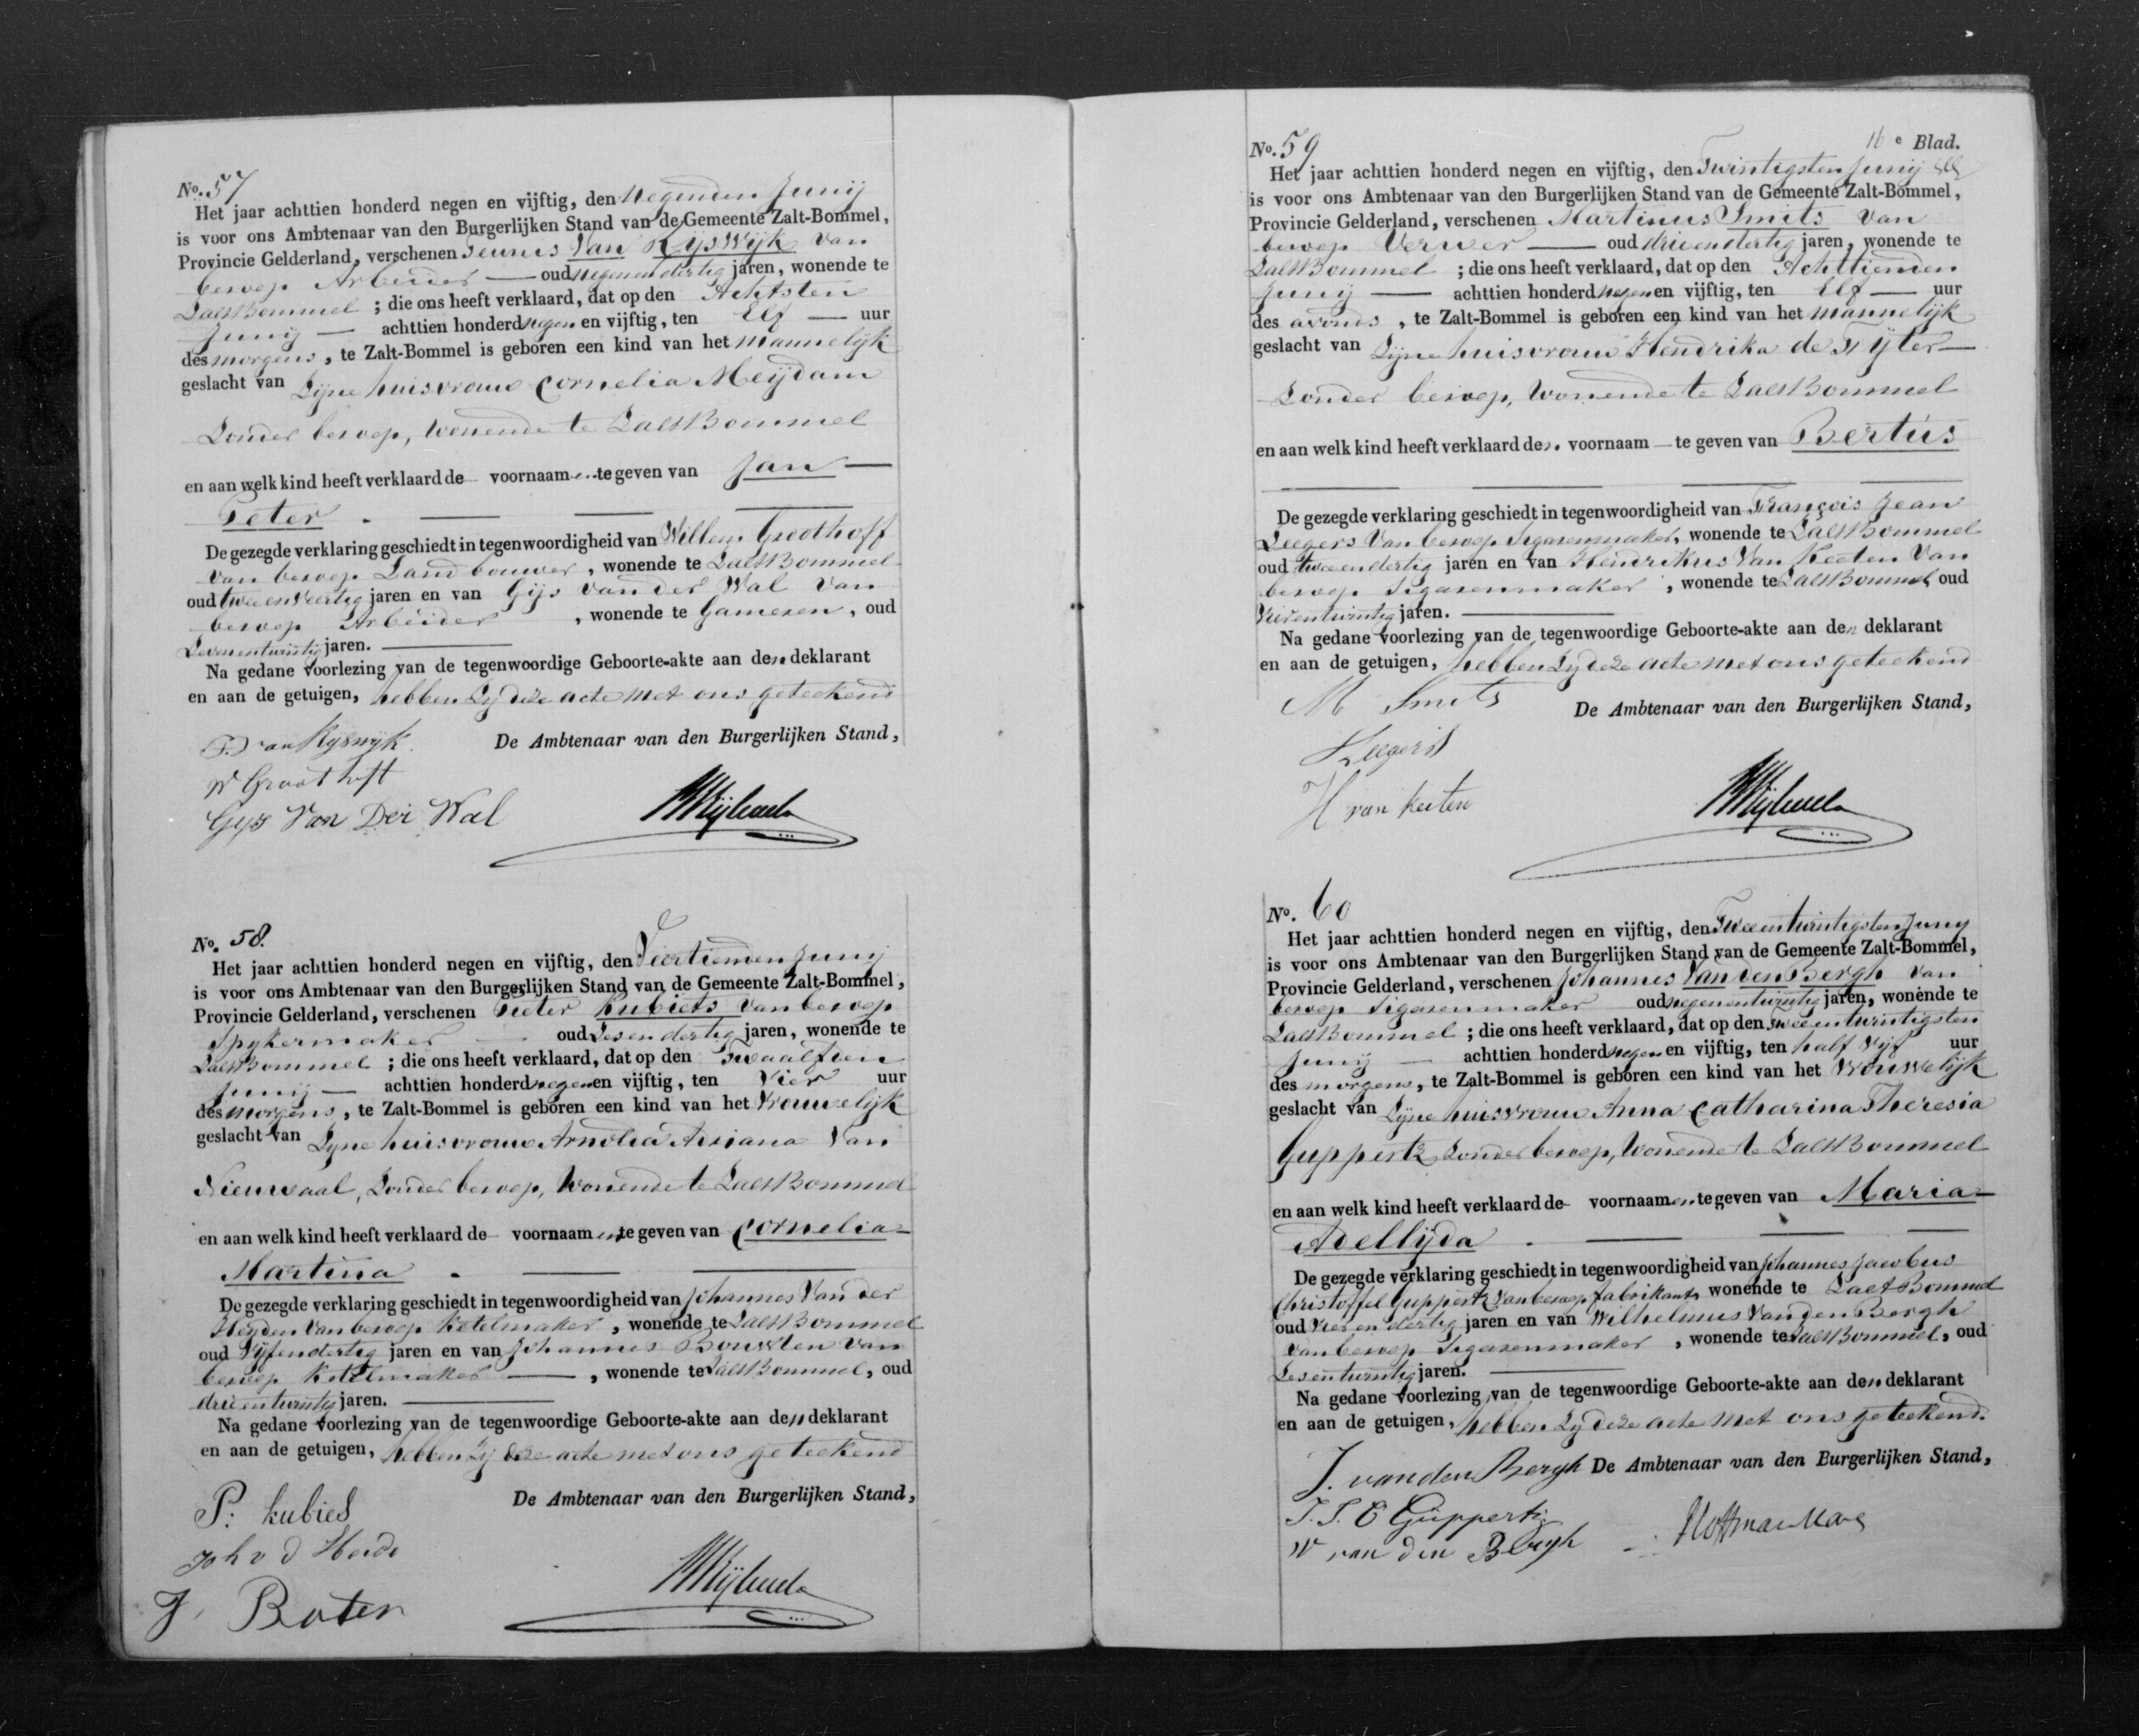 No. 57
Het jaar achttien honderd negen en vijftig, den Negenden Junij
is voor ons Ambtenaar van den Burgerlijken Stand van de Gemeente Zalt-Bommel,
Provincie Gelderland, verschenen Teunis Van Rijswijk van
beroep Arbeider oud negenendertig jaren, wonende te
ZaltBommel ; die ons heeft verklaard, dat op den Achtsten
Junij achttien honderd negen en vijftig, ten Elf uur
des morgens, te Zalt-Bommel is geboren een kind van het mannelijk
geslacht van Zijne huisvrouw Cornelia Meijdam
Zonder beroep, wonende te ZaltBommel
en aan welk kind heeft verklaard de voornaamen te geven van Jan
Peter.
De gezegde verklaring geschiedt in tegenwoordigheid van Willem Groothoff
van beroep Landbouwer, wonende te ZaltBommel
oud tweeenveertig jaren en van Gijs van der Wal van
beroep Arbeider, wonende te Gameren, oud
Zevenentwintig jaren.
Na gedane voorlezing van de tegenwoordige Geboorte-akte aan den deklarant
en aan de getuigen, hebben Zij deze acte met ons geteekend
T. van Rijswijk.
De Ambtenaar van den Burgerlijken Stand,
W Groothoft
Gijs Van Der Wal
No. 58.
Het jaar achttien honderd negen en vijftig, den Veertienden Junij
is voor ons Ambtenaar van den Burgerlijken Stand van de Gemeente Zalt-Bommel,
Provincie Gelderland, verschenen Pieter Kubiets van beroep
Spijkermaker oud Zesendertig jaren, wonende te
ZaltBommel ; die ons heeft verklaard, dat op den Twaalfden
Junij achttien honderd negen en vijftig, ten Vier uur
des morgens, te Zalt-Bommel is geboren een kind van het Vrouwelijk
geslacht van Zijne huisvrouw Arnolda Adriana Van
Nieuwaal, Zonder beroep, Wonende te ZaltBommel
en aan welk kind heeft verklaard de voornaamen te geven van Cornelia
Martina.
De gezegde verklaring geschiedt in tegenwoordigheid van Johannes Van der
Heijden Van beroep Ketelmaker, wonende te ZaltBommel
oud Vijfendertig jaren en van Johannes Bouwten van
beroep Ketelmaker, wonende te ZaltBommel, oud
drieentwintig jaren.
Na gedane voorlezing van de tegenwoordige Geboorte-akte aan den deklarant
en aan de getuigen, hebben Zij deze acte met ons geteekend
P: kubies
De Ambtenaar van den Burgerlijken Stand,
Joh v d Heide
J. Boten
16e Blad.
No. 59
Het jaar achttien honderd negen en vijftig, den Twintigsten Junij
is voor ons Ambtenaar van den Burgerlijken Stand van de Gemeente Zalt-Bommel,
Provincie Gelderland, verschenen Martinus Smits van
beroep Verwer oud drieendertig jaren, wonende te
ZaltBommel ; die ons heeft verklaard, dat op den Achttienden
Junij achttien honderd negen en vijftig, ten Elf uur
des avonds, te Zalt-Bommel is geboren een kind van het mannelijk
geslacht van Zijne huisvrouw Hendrika de Fijter
Zonder beroep, Wonende te ZaltBommel
en aan welk kind heeft verklaard den voornaam te geven van Bertus
De gezegde verklaring geschiedt in tegenwoordigheid van François Jean
Leegers Van beroep Sigarenmaker, wonende te ZaltBommel
oud tweeendertig jaren en van Hendrikus Van Keeten Van
beroep Sigarenmaker, wonende te ZaltBommel, oud
Vierentwintig jaren.
Na gedane voorlezing van de tegenwoordige Geboorte-akte aan den deklarant
en aan de getuigen, hebben Zij deze acte met ons geteekend
M Smits
De Ambtenaar van den Burgerlijken Stand,
H van keeten
No. 60
Het jaar achttien honderd negen en vijftig, den Tweeentwintigsten Junij
is voor ons Ambtenaar van den Burgerlijken Stand van de Gemeente Zalt-Bommel,
Provincie Gelderland, verschenen Johannes Van den Bergh van
beroep Sigarenmaker oud negenentwintig jaren, wonende te
ZaltBommel ; die ons heeft verklaard, dat op den Tweeentwintigsten
Junij achttien honderd negen en vijftig, ten half Vijf uur
des morgens, te Zalt-Bommel is geboren een kind van het Vrouwelijk
geslacht van Zijne huisvrouw Anna Catharina Theresia
Guppertz Zonder beroep, Wonende te ZaltBommel
en aan welk kind heeft verklaard de voornaamen te geven van Maria
Adellijda.
De gezegde verklaring geschiedt in tegenwoordigheid van Johannes Jacobus
Christoffel Guppertz Van beroep fabrikant, wonende te ZaltBommel
oud Vierendertig jaren en van Wilhelmus Van den Bergh
Van beroep Sigarenmaker, wonende te ZaltBommel, oud
Zesentwintig jaren.
Na gedane voorlezing van de tegenwoordige Geboorte-akte aan den deklarant
en aan de getuigen, hebben Zij deze acte met ons geteekend.
J. van den Bergh
De Ambtenaar van den Burgerlijken Stand,
J. J. C Guppertz
W van den Bergh